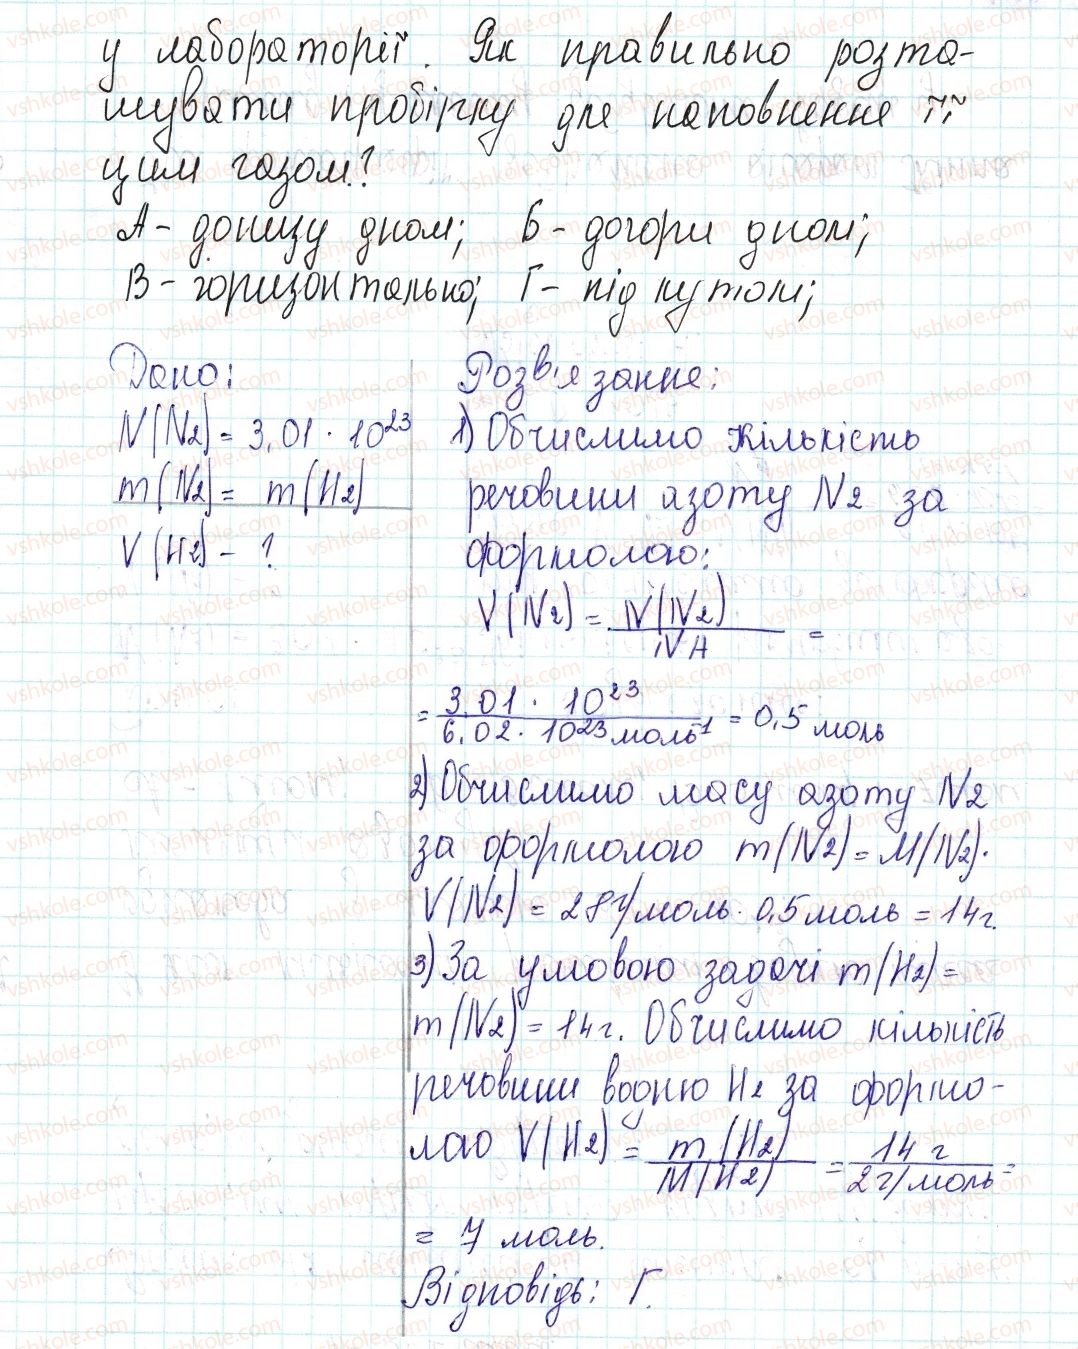 у лабораторії. Як правильно розта-
шувати пробірку для наповнення її
цим газом?
А - донизу дном; Б - догори дном;
В - горизонтально; Г - під кутом;
Дано:
N(N2) = 3,01 · 10²³
m(N2) = m(H2)
V(H2) - ?
Розв'язання:
1) Обчислимо кількість
речовини азоту N2 за
формолою:
V(N2) = N(N2) / NA =
= 3,01 · 10²³ / 6,02 · 10²³ моль⁻¹ = 0,5 моль
2) Обчислимо масу азоту N2
за формолою m(N2) = M(N2) ·
V(N2) = 28 г/моль · 0,5 моль = 14 г.
3) За умовою задачі m(H2) =
m(N2) = 14 г. Обчислимо кількість
речовини водню H2 за формо-
лаю V(H2) = m(H2) / M(H2) = 14 г / 2 г/моль =
= 7 моль.
Відповідь: Г.
vshkole.com